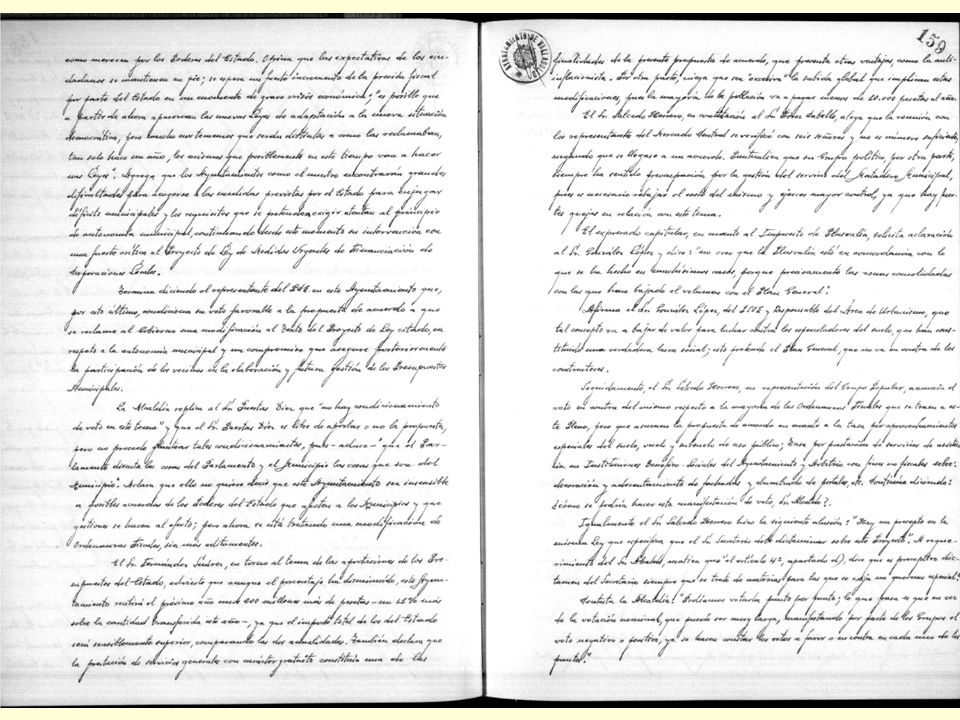 como merecen por los Poderes del Estado. Opina que las expectativas de los ciu-
dadanos se mantienen en pie; se espera un fuerte incremento de la presión fiscal
por parte del Estado en un momento de grave crisis económica; "es posible que
a partir de ahora aparezcan las nuevas Leyes de adaptación a la nueva situación
democrática, pero mucho nos tememos que serán distintas a como las reclamaban,
tan solo hace un año, los mismos que posiblemente en este tiempo van a hacer
esas Leyes". Agrega que los Ayuntamientos como el nuestro encontrarán grandes
dificultades para acogerse a las medidas previstas por el Estado para enjugar
déficits municipales y los requisitos que se pretenden exigir atentan al principio
de autonomía municipal, continuando desde este momento su intervención con
una fuerte crítica al Proyecto de Ley de Medidas Urgentes de Financiación de
Corporaciones Locales.
Termina diciendo el representante del en este Ayuntamiento que,
por este último, condiciona su voto favorable a la propuesta de acuerdo a que
se reclame al Gobierno una modificación al Texto del Proyecto de Ley citado, un
respeto a la autonomía municipal y un compromiso que asegure posteriormente
la participación de los vecinos en la elaboración y futura gestión de los Presupuestos
Municipales.
La Alcaldía replica al Sr. Puertas Dier que "no hay condicionamiento
de voto en este tema" y que el Sr. Puertas Dier es libre de aprobar o no la propuesta,
pero no procede plantear tales condicionamientos, pues - aduce - "que el Par-
lamento discuta las cosas del Parlamento y el Municipio las cosas que son del
Municipio". Aclara que ello no quiere decir que este Ayuntamiento sea insensible
a posibles acuerdos de los Poderes del Estado que afecten a los Municipios y que
gestiones se hacen al efecto; pero ahora se está tratando una modificación de
Ordenanzas Fiscales, sin más aditamentos.
El Sr. Fernández Santos, en torno al tema de las aportaciones de los Pre-
supuestos del Estado, advierte que aunque el porcentaje ha disminuido, este Ayun-
tamiento recibirá el próximo año unos 200 millones más de pesetas - un % más
sobre la cantidad transferida este año -, ya que el importe total de los del Estado
será sensiblemente superior, comparando las dos anualidades. También declara que
la prestación de servicios generales con carácter gratuito constituía una de las
AYUNTAMIENTO DE VALLADOLID
159
finalidades de la presente propuesta de acuerdo, que presenta otras ventajas, como la anti-
inflacionista. Por otra parte, niega que sea "excesiva" la subida global que implican estas
modificaciones, pues la mayoría de la población va a pagar menos de 10.000 pesetas al año.
El Sr. Salcedo Herrero, en contestación al Sr. , alega que la reunión con
los representantes del Mercado Central se verificó con seis señores y no es número suficiente,
negando que se llegase a un acuerdo. Puntualiza que su Grupo político, por otra parte,
siempre ha sentido preocupación por la gestión del servicio del Matadero Municipal,
pues es necesario rebajar el coste del mismo y ejercer mayor control, ya que hay posi-
bles quejas en relación con este tema.
El expresado capitular, en cuanto al Impuesto de Plusvalía, solicita aclaración
al Sr. González López y dice: "no creo que la Plusvalía esté en concordancia con lo
que se ha hecho en muchísimos casos, porque precisamente las zonas consolidadas
son las que han bajado el volumen con el Plan General".
Afirma el Sr. González López, del PSOE y Responsable del Área de Urbanismo, que
tal concepto va a bajar de valor para luchar contra los especuladores del suelo, que han cons-
tituido una verdadera lacra social; esto pretende el Plan General, que no va en contra de los
constructores.
Seguidamente, el Sr. Salcedo Herrero, en representación del Grupo Popular, anuncia el
voto en contra del mismo respecto a la mayoría de las Ordenanzas Fiscales que se traen a es-
te Pleno, pero que asumen la propuesta de acuerdo en cuanto a la tasa por aprovechamientos
especiales del suelo, vuelo y subsuelo de uso público; Tasa por prestación de servicios de asisten-
cia en Instituciones Benéfico-Sociales del Ayuntamiento y Arbitrio con fines no fiscales sobre:
decoración y adecentamiento de fachadas y alumbrado de portales, etc. Continúa diciendo:
¿cómo se podría hacer esta manifestación de voto, Sr. Alcalde?.
Igualmente el Sr. Salcedo Herrero hizo la siguiente alusión: "Hay un precepto en la
misma Ley que especifica que el Sr. Secretario debe dictaminar sobre este Proyecto". A reque-
rimiento del Sr. Alcalde, matiza que "el artículo 4º, apartado d), dice que es preceptivo dic-
tamen del Secretario siempre que se trate de materias para las que se exija un "quórum especial".
Contesta la Alcaldía: "Podíamos votarlo punto por punto; lo que pasa es que en vez
de la votación nominal, que puede ser muy larga, manifestando por parte de los Grupos el
voto negativo o positivo, ya se hacen constar los votos a favor o en contra en cada uno de los
puntos."